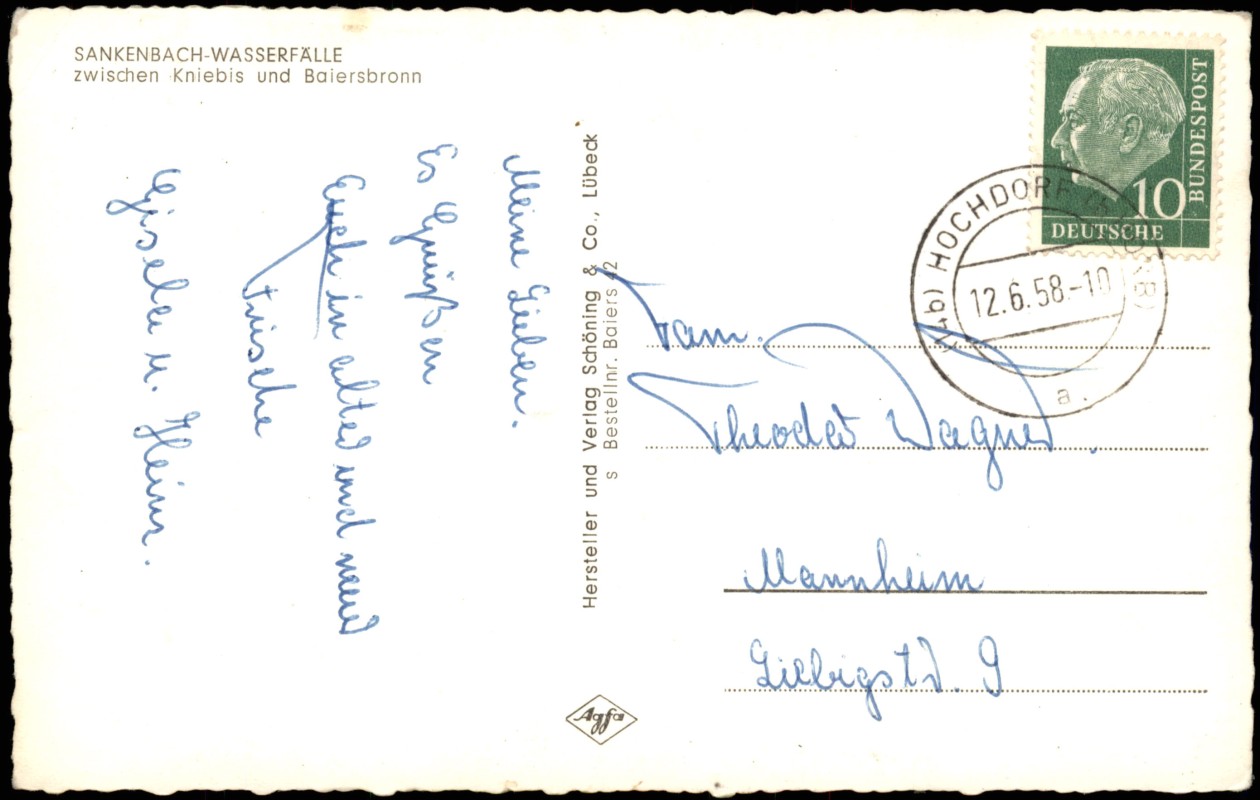 SANKENBACH-WASSERFÄLLE
zwischen Kniebis und Baiersbronn
Meine Lieben.
Es Grüßen
Euch in alter und neuer
Frische
Gisela u. Heinz.
Hersteller und Verlag Schöning & Co., Lübeck
s Bestellnr. Baiers 42
Agfa
BUNDESPOST
10
DEUTSCHE
(14b) HOCHDORF
12.6.58.-10
a
Fam.
Theodor Wagner.
Mannheim
Liebigstr. 9